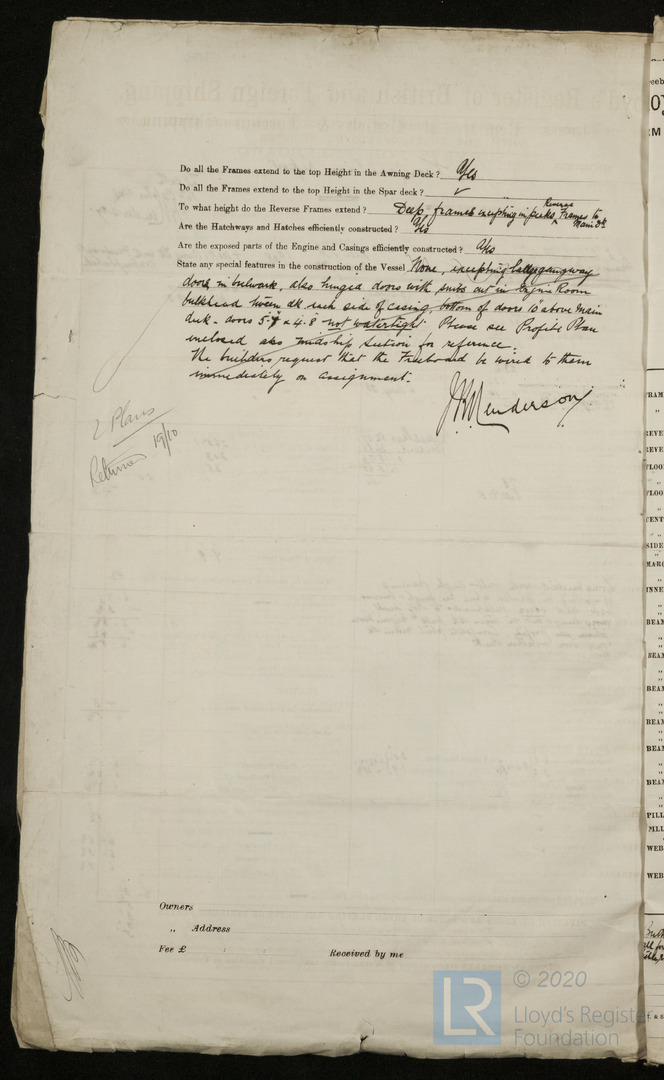 Do all the Frames extend to the top Height in the Awning Deck ? Yes
Do all the Frames extend to the top Height in the Spar deck ? ✓
To what height do the Reverse Frames extend ? Deep frames excepting in peaks, Reverse Frames to Main Dk
Are the Hatchways and Hatches efficiently constructed ? Yes
Are the exposed parts of the Engine and Casings efficiently constructed ? Yes
State any special features in the construction of the Vessel None, excepting gangway
doors in bulwark, also hinged doors with out in Engine Room
bulkhead tween dk each side of casing, bottom of doors above Main
deck - doors 5-9 x 4.8 not watertight. Please see Profile Plan
enclosed also Midship Section for reference.
The builders request that the Freeboard be wired to them
immediately on assignment.
J Henderson
2 Plans
Returned 19/10
Owners
„ Address
Fee £ : :
Received by me
LR
© 2020
Lloyd's Register
Foundation